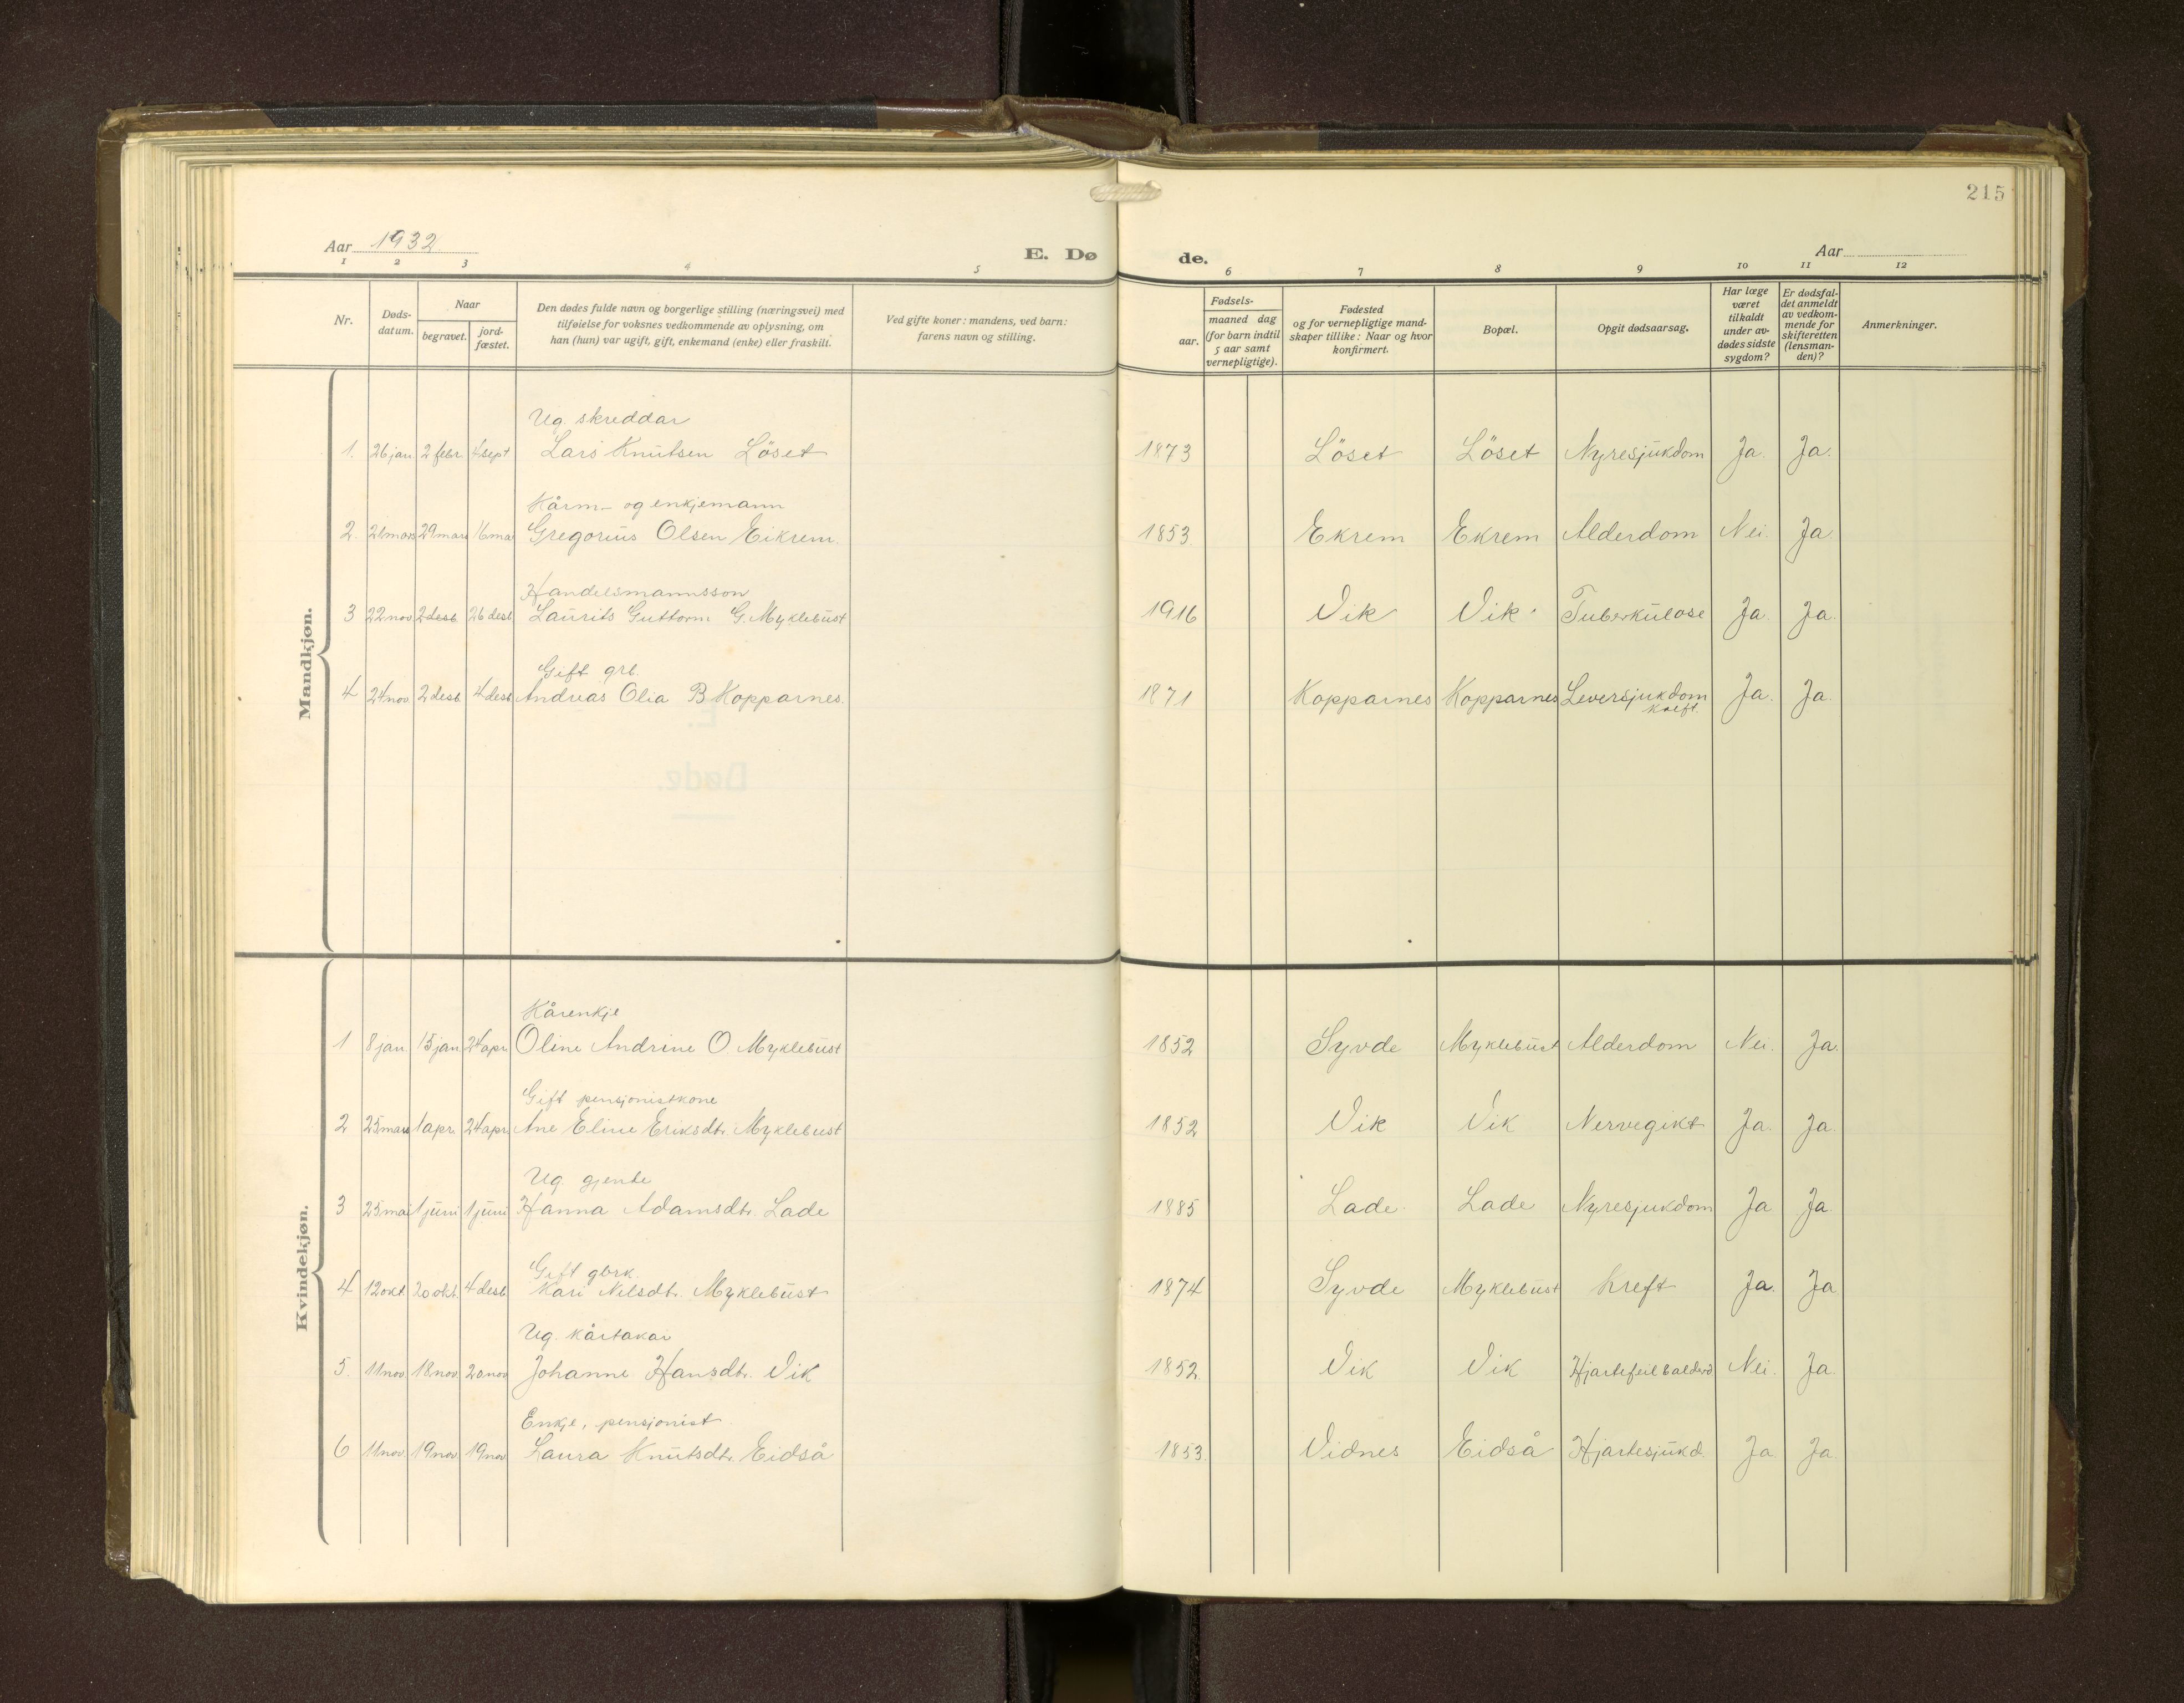 215
Aar 1932
E. Dø
de.
Aar
1 2 3 4 5 6 7 8 9 10 11 12
Nr.
Døds-
datum.
Naar
begravet.
jord-
fæstet.
Den dødes fulde navn og borgerlige stilling (næringsvei) med
tilføielse for voksnes vedkommende av oplysning, om
han (hun) var ugift, gift, enkemand (enke) eller fraskilt.
Ved gifte koner: mandens, ved barn:
farens navn og stilling.
Fødsels-
aar.
maaned dag
(for barn indtil
5 aar samt
vernepligtige).
Fødested
og for vernepligtige mand-
skaper tillike: Naar og hvor
konfirmert.
Bopæl.
Opgit dødsaarsag.
Har læge
været
tilkaldt
under av-
dødes sidste
sygdom?
Er dødsfal-
det anmeldt
av vedkom-
mende for
skifteretten
(lensman-
den)?
Anmerkninger.
Mandkjøn.
Ug. skreddar
1. 26 jan 2 febr 4 sept Lars Knutsen Löset 1873 Löset Löset Nyresjukdom Ja. Ja.
Kårm- og enkjemann
2. 21 mars 29 mars 16 mai Gregorius Olsen Eikrem. 1853 Ekrem Ekrem Alderdom Nei. Ja
Handelsmannsson
3 22 nov 2 desb. 26 desb Laurits Guttorm G. Myklebust 1916 Vik Vik Tuberkulose Ja. Ja.
Gift grb.
4 24 nov 2 desb 4 desb Andreas Olia B Kopparnes. 1871 Kopparnes Kopparnes Leversjukdom Ja. Ja.
kreft.
Kvindekjøn.
Kårenkje
1 8 jan 15 jan 24 apr Oline Andrine O. Myklebust 1852 Syvde Myklebust Alderdom Nei. Ja.
Gift pensjonistkone
2 25 mars 1 apr. 24 apr Ane Eline Eriksdtr. Myklebust 1852 Vik Vik Nervegikt Ja. Ja.
Ug. gjente
3 25 mai 1 juni 1 juni Hanna Adamsdtr. Lade 1885 Lade Lade Nyresjukdom Ja Ja
Gift gbrk.
4 12 okt 20 okt. 4 desb Kari Nilsdtr. Myklebust 1874 Syvde Myklebust Kreft Ja. Ja
Ug. kårtakar
5. 11 nov 18 nov 20 nov Johanne Hansdtr. Vik 1852 Vik Vik Hjartefeil Nei. Ja.
Enkje, pensjonist
6 11 nov 19 nov 19 nov Laura Knutsdtr. Eidså 1853. Vidnes Eidså Hjartesjukd. Ja. Ja.